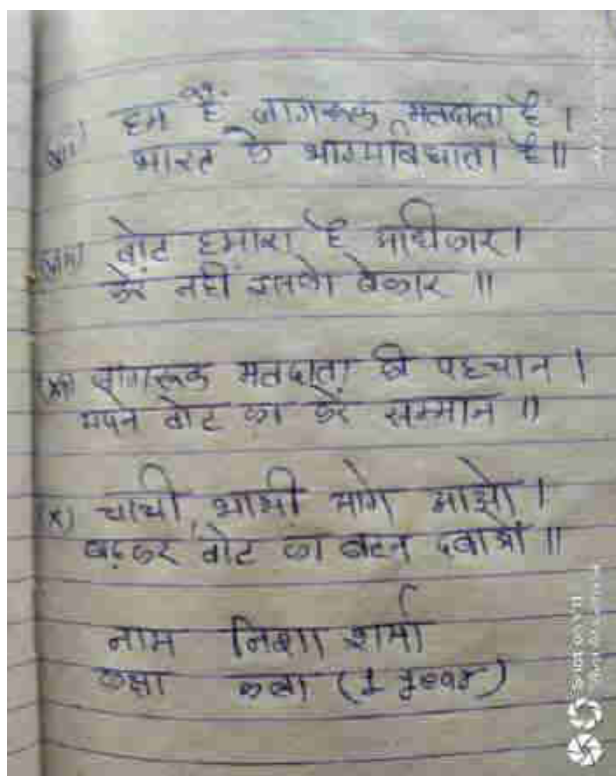 हम हैं जागरूक मतदाता है।
भारत के भाग्यविधाता है॥
वोट हमारा है अधिकार।
करें नहीं इसको बेकार॥
जागरूक मतदाता की पहचान।
अपने वोट का करें सम्मान॥
(x) चाची, भाभी आगे आओ।
बढ़कर वोट का बटन दबाओ॥
नाम निशा शर्मा
कक्षा कला (1 year)